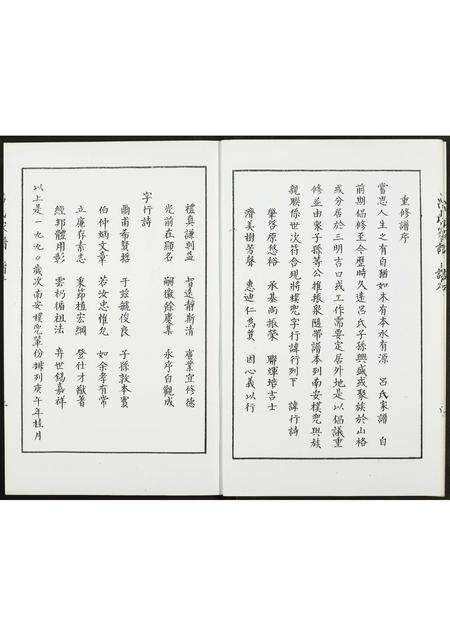 重修譜序
嘗思人生之有自猶如木有本水有源　呂氏家譜　自
前期倡修至今歷時久遠呂氏子孫興盛或聚族於山格
或分居於三明吉口或工作需要定居外地是以倡議重
修並由眾子孫等公推振聚隨帶譜本到南安樸兜與族
親聯係世次符合現將樸兜字行諱行列下　諱行詩
肇啓原悠裕　承基尚振榮　聯輝培吉士
濟美樹芳聲　惠迪仁為貴　因心義以行
禮真謙則益　智遠靜斯清　廣業宜修德
光前在顯名　嗣徽餘慶集　永序自觀成
字行詩
爾甫希賢哲　于茲毓俊良　子孫敦本實
伯仲炳文章　若汝忠惟允　如余孝有常
立廉存素志　秉節植宏綱　登仕才猷著
經邦體用彰　雲礽循祖法　奕世錫嘉祥
以上是一九九〇歲次南安樸兜輩份排列庚午年桂月